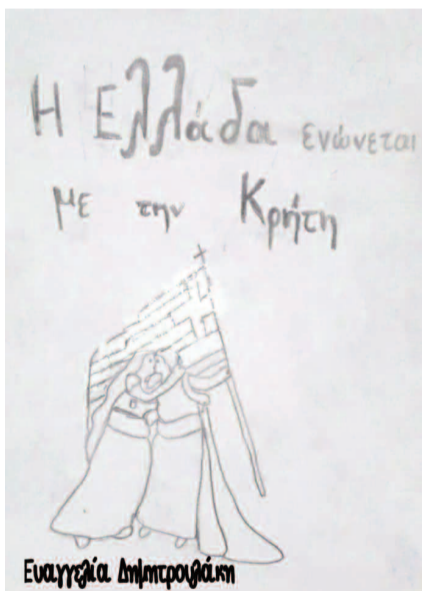 Η Ελλάδα ενώνεται
με την Κρήτη
Ευαγγελία Δημητρουλάκη